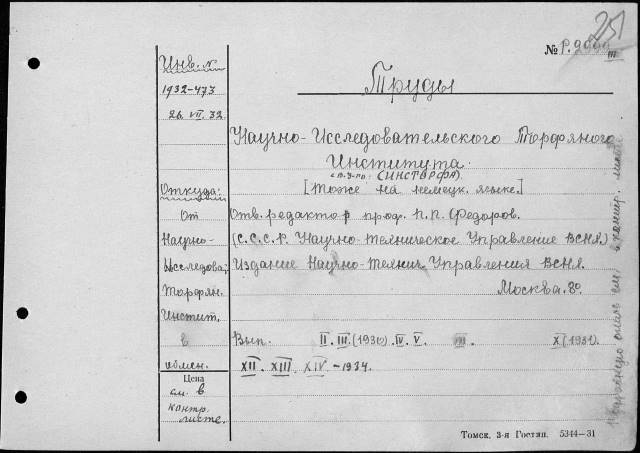 251
№ Р. 2000 III
Инв. №
1932-473
26. VII. 32.
Откуда:
От
Научно-
Исследова,
Торфян.
Инстит.
в
обмен.
Цена
см. в
контр.
листе.
Труды
Научно-Исследовательского Торфяного
Института.
(ИНСТОРФА).
[Тоже на немецк. языке.]
Отв. редактор проф. П. П. Федоров.
(С.С.С.Р. Научно-Техническое Управление ВСНХ)
Издание Научно-Технич. Управления ВСНХ.
Москва. 8°.
Вып. II. III. (1930). IV. V. VIII. X (1931).
XII. XIII. XIV. – 1934.
Томск. 3-я Гостип. 5344—31